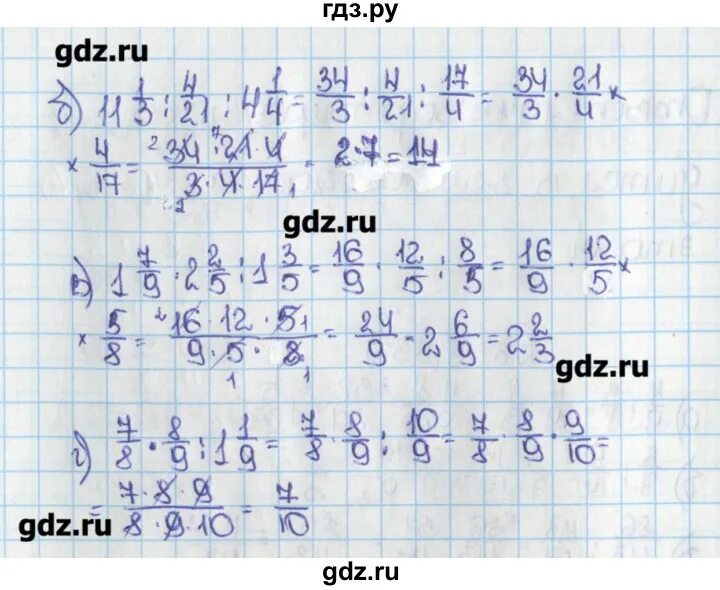 гдз.ру
gdz.ru
б) 11 1/3 : 4/21 : 4 1/4 = 34/3 : 4/21 : 17/4 = 34/3 · 21/4 ×
× 4/17 = 34·21·4/3·4·17 = 2·7=14
gdz.ru
в) 1 7/9 · 2 2/5 : 1 3/5 = 16/9 · 12/5 : 8/5 = 16/9 · 12/5 ×
× 5/8 = 16·12·5/9·5·8 = 24/9 = 2 6/9 = 2 2/3
gdz.ru
г) 7/8 · 8/9 : 1 1/9 = 7/8 · 8/9 : 10/9 = 7/8 · 8/9 · 9/10 =
= 7·8·9/8·9·10 = 7/10
gdz.ru
gdz.ru